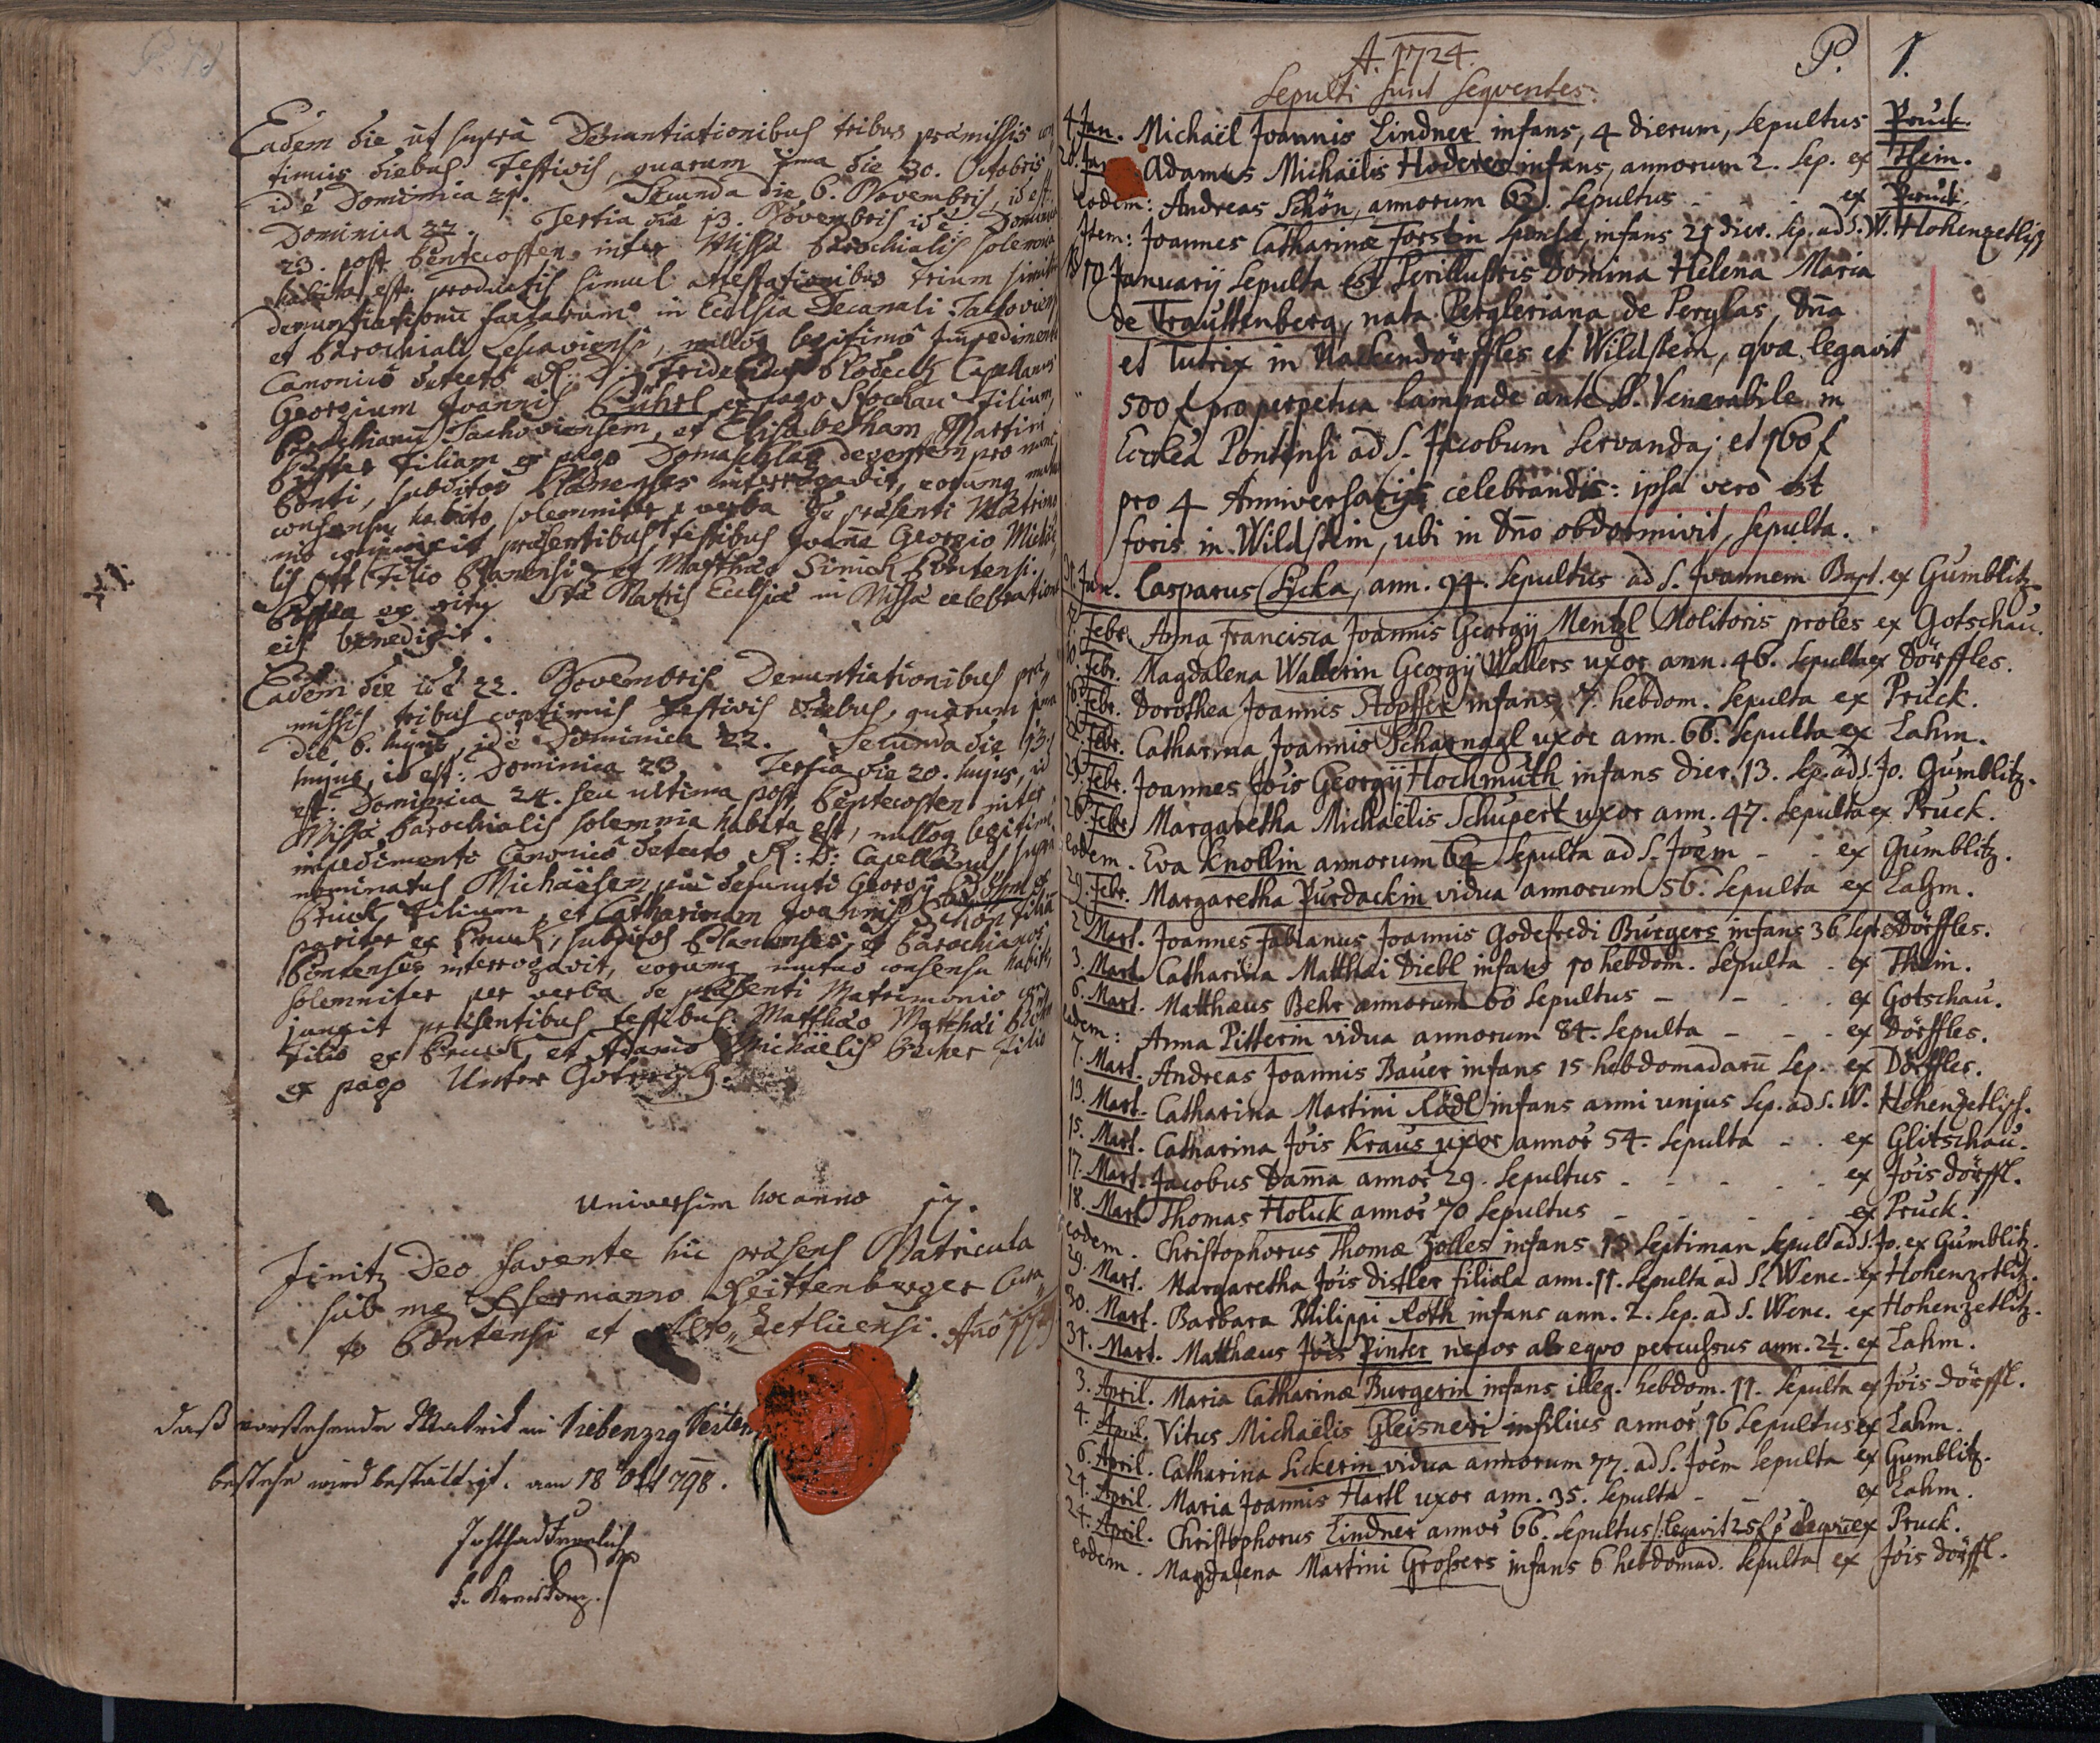 Eadem die ut supra Denuntiationibus tribus præmissis con
timuis diebus Festivis, quarum ima die 30. Octobris
id ē Dominica 21. Secunda die 6. Novembris, id est
Dominica 22. Tertia die 13. Novembris id ē Dominica
23. post Pentecosten inter Missæ Parochialis solemnia
habita est: productis simul attestationibus trium similiter
denuntiationū factarum in Ecclsia Decanali Tachoviensi
et Parochiali, nulloq legitimo Impedimento
Canonico detecto R: D: Capellanus
Georgium Joannis ex pago Stockau Filium,
Parochianū Tachoviensem, et Elisabetham Martini
Filiam ex pago Domaschlag degentem pro nunc
Ponti, subditos Planenses interrogavit, eorumq mutuo
consensu habito solemniter p verba de præsenti Matrimo
nio conjunxit præsentibus testibus Joañe Georgio Michae
lis Ott Filio Planensi et Matthæo Simek Pontensi.
Postea ex ritu Stæ Matris Ecclsiæ in Missæ celebratione
eis benedixit.
Eadem die id ē 22. Novembris Denuntiationibus præ
missis tribus continuis Festivis diebus, quarum ima
die 6. hujus, id ē Dominica 22. Secunda die 13.
hujus, id est: Dominica 23. Tertia die 20. hujus, id
est: Dominica 24. seu ultima post Pentecosten inter
Missæ Parochialis solemnia habita est, nulloq legitimo
impedimento Canonico detecto R: D: Capellanus supra
nominatus Michaëlem pie defuncti Georgÿ Böhm ex
Pruck Filium, et Catharinam Joannis Schön filiā
pariter ex Pruck, subditos Planenses, et Parochianos
Pontenses interrogavit, eorumq mutuo consensu habito
solemniter per verba de præsenti Matrimonio con
junxit præsentibus testibus: Matthæo Matthæi
Filio ex Pruck, et Adamo Michaëlis Filio
ex pago Unter
Universim hoc anno 17.
Finitz Deo favente hic præsens Matricula
sub me Hermanno Reittenburger Cura
to Pontensi et Alto Zetlicensi. Año
daß vorstehende Matrik in Siebenzig Seiten
bestehe wird bestättigt. am 18 Okt 798.
A. 1724. P. 1.
Sepulti sunt Seqventes.
4. Jan. Michaël Joannis Lindner infans, 4 dierum, sepultus Pruck.
20. Jan Adamus Michaëlis Hoderer infans, annorum 2. sep. ex Thein.
Eodem: Andreas Schön, annorum 62. Sepultus - - ex Pruck.
Item: Joannes Catharinæ Forstin infans 21 dier. sep. ad S. W. Hohenzetlisch
Januarÿ Sepulta est Perillustris Domina Helena Maria
de Trauttenberg, nata Pergleriana de Perglas, Dña
et Tutrix in Nackendörffles et Wildstein, qvæ legavit
500 f pro perpetua lampade ante S. Venerabile in
Ecclea Pontensi ad S. Jacobum servanda; et 160 f
pro 4 Anniversarÿs celebrandis: ipsa vero est
foris in Wildstein, ubi in Dño obdormivit, sepulta.
31. Jan. Casparus Licka, ann. 94. Sepultus ad S. Joannem Bapt. ex Gumblitz.
Febr. Anna Francisca Joannis Georgÿ Mentzl Molitoris proles ex Gotschau.
10. Febr. Magdalena Wallerin Georgÿ Wallers uxor ann. 46. Sepulta ex Dörffles.
16. Febr. Dorothea Joannis Stopffer infans, 7. hebdom. Sepulta ex Pruck.
22. Febr. Catharina Joannis Scharnagl uxor ann. 66. Sepulta ex Lahm.
23. Febr. Joannes Jois Georgÿ Hochmuth infans dier. 13. Sep. ad S. Jo. Gumblitz.
26. Febr. Margaretha Michaëlis Schupert uxor ann. 47. Sepulta ex Pruck.
Eodem. Eva Knollin annorum 64 Sepulta ad S. Joēm - - ex Gumblitz.
29. Febr. Margaretha Purdackin vidua annorum 56. Sepulta ex Lahm.
2. Mart. Joannes Fabianus Joannis Godefredi Burgers infans 36 sept. ex Dörffles.
3. Mart. Catharina Matthæi Diebl infans 10 hebdom. Sepulta - ex Thein.
6. Mart. Matthæus Behr annorum 60 Sepultus - - - ex Gotschau.
Eodem: Anna Pitterin vidua annorum 84. Sepulta - - - ex Dörffles.
7. Mart. Andreas Joannis Bauer infans 15 hebdomadarū Sep. ex Dörffles.
13. Mart. Catharina Martini Rödl infans anni unjus Sep. ad S. W. Hohenzetlisch.
15. Mart. Catharina Jois Kraus uxor annor 54. Sepulta - - ex Glitschau.
17. Mart. Jacobus Dam̄a annor 29. Sepultus - - - - ex Jois dörffl.
18. Mart. Thomas Holuk annor 70 Sepultus - - - - ex Pruck.
Eodem. Christophorus Thomæ Zolles infans 13 Septiman Sepult ad S. Jo. ex Gumblitz.
29. Mart. Margaretha Jois Distler filiola ann. 11. Sepulta ad S. Wenc. ex Hohenzetlitz.
30. Mart. Barbara Philippi Roth infans ann. 2. Sep. ad S. Wenc. ex Hohenzetlitz.
31. Mart. Matthæus Jois Pinter nepos ab eqvo percussus ann. 2½. ex Lahm.
3. April. Maria Catharinæ Burgerin infans illeg. hebdom. 11. Sepulta ex Jois dörffl.
4. April. Vitus Michaëlis Gleisneri filius annor 16 Sepultus ex Lahm.
6. April. Catharina Lickerin vidua annorum 77. ad S. Joēm Sepulta ex Gumblitz.
21. April. Maria Joannis Hartl uxor ann. 35. Sepulta - - - ex Lahm.
24. April. Christophorus Lindner annor 66. Sepultus /: legavit 25 f ex Pruck.
eodem. Magdalena Martini Grossers infans 6 hebdomad. Sepulta ex Jois dörffl.